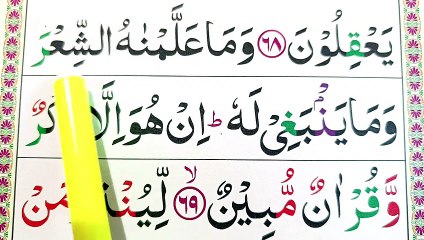 يَعْقِلُوْنَ ۝٦٨ وَمَا عَلَّمْنٰهُ الشِّعْرَ
وَمَا يَنْۢبَغِيْ لَهٗ ؕ اِنْ هُوَ اِلَّا
وَّقُرْاٰنٌ مُّبِيْنٌ ۝٦٩ۙ لِّيُنْذِرَ مَنْ